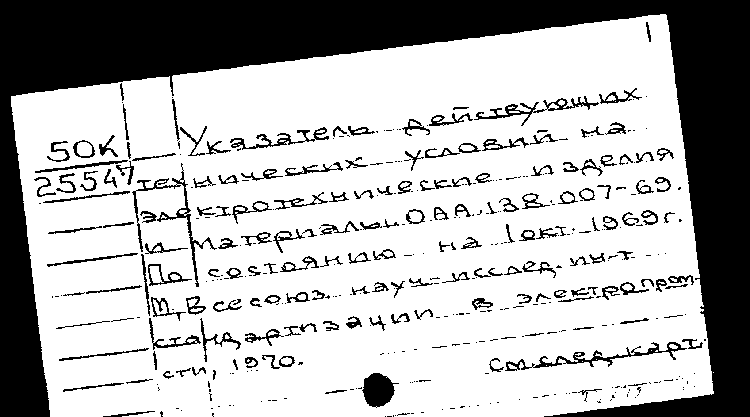 50К
25547
Указатель действующих
технических условий на
электротехнические изделия
и материалы. ОАА.138.007-69.
По состоянию на 1 окт. 1969г.
М., Всесоюз. науч.-исслед. ин-т
стандартизации в электропром-
сти, 1970.
см. след. карт.